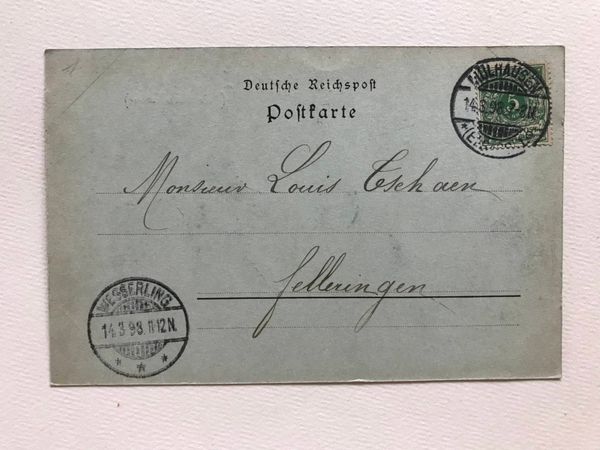 Deutsche Reichspost
Postkarte
MÜLHAUSEN
14.3.98.
Monsieur Louis Tschaen
Felleringen
WESSERLING
14.3.98.11-12N.